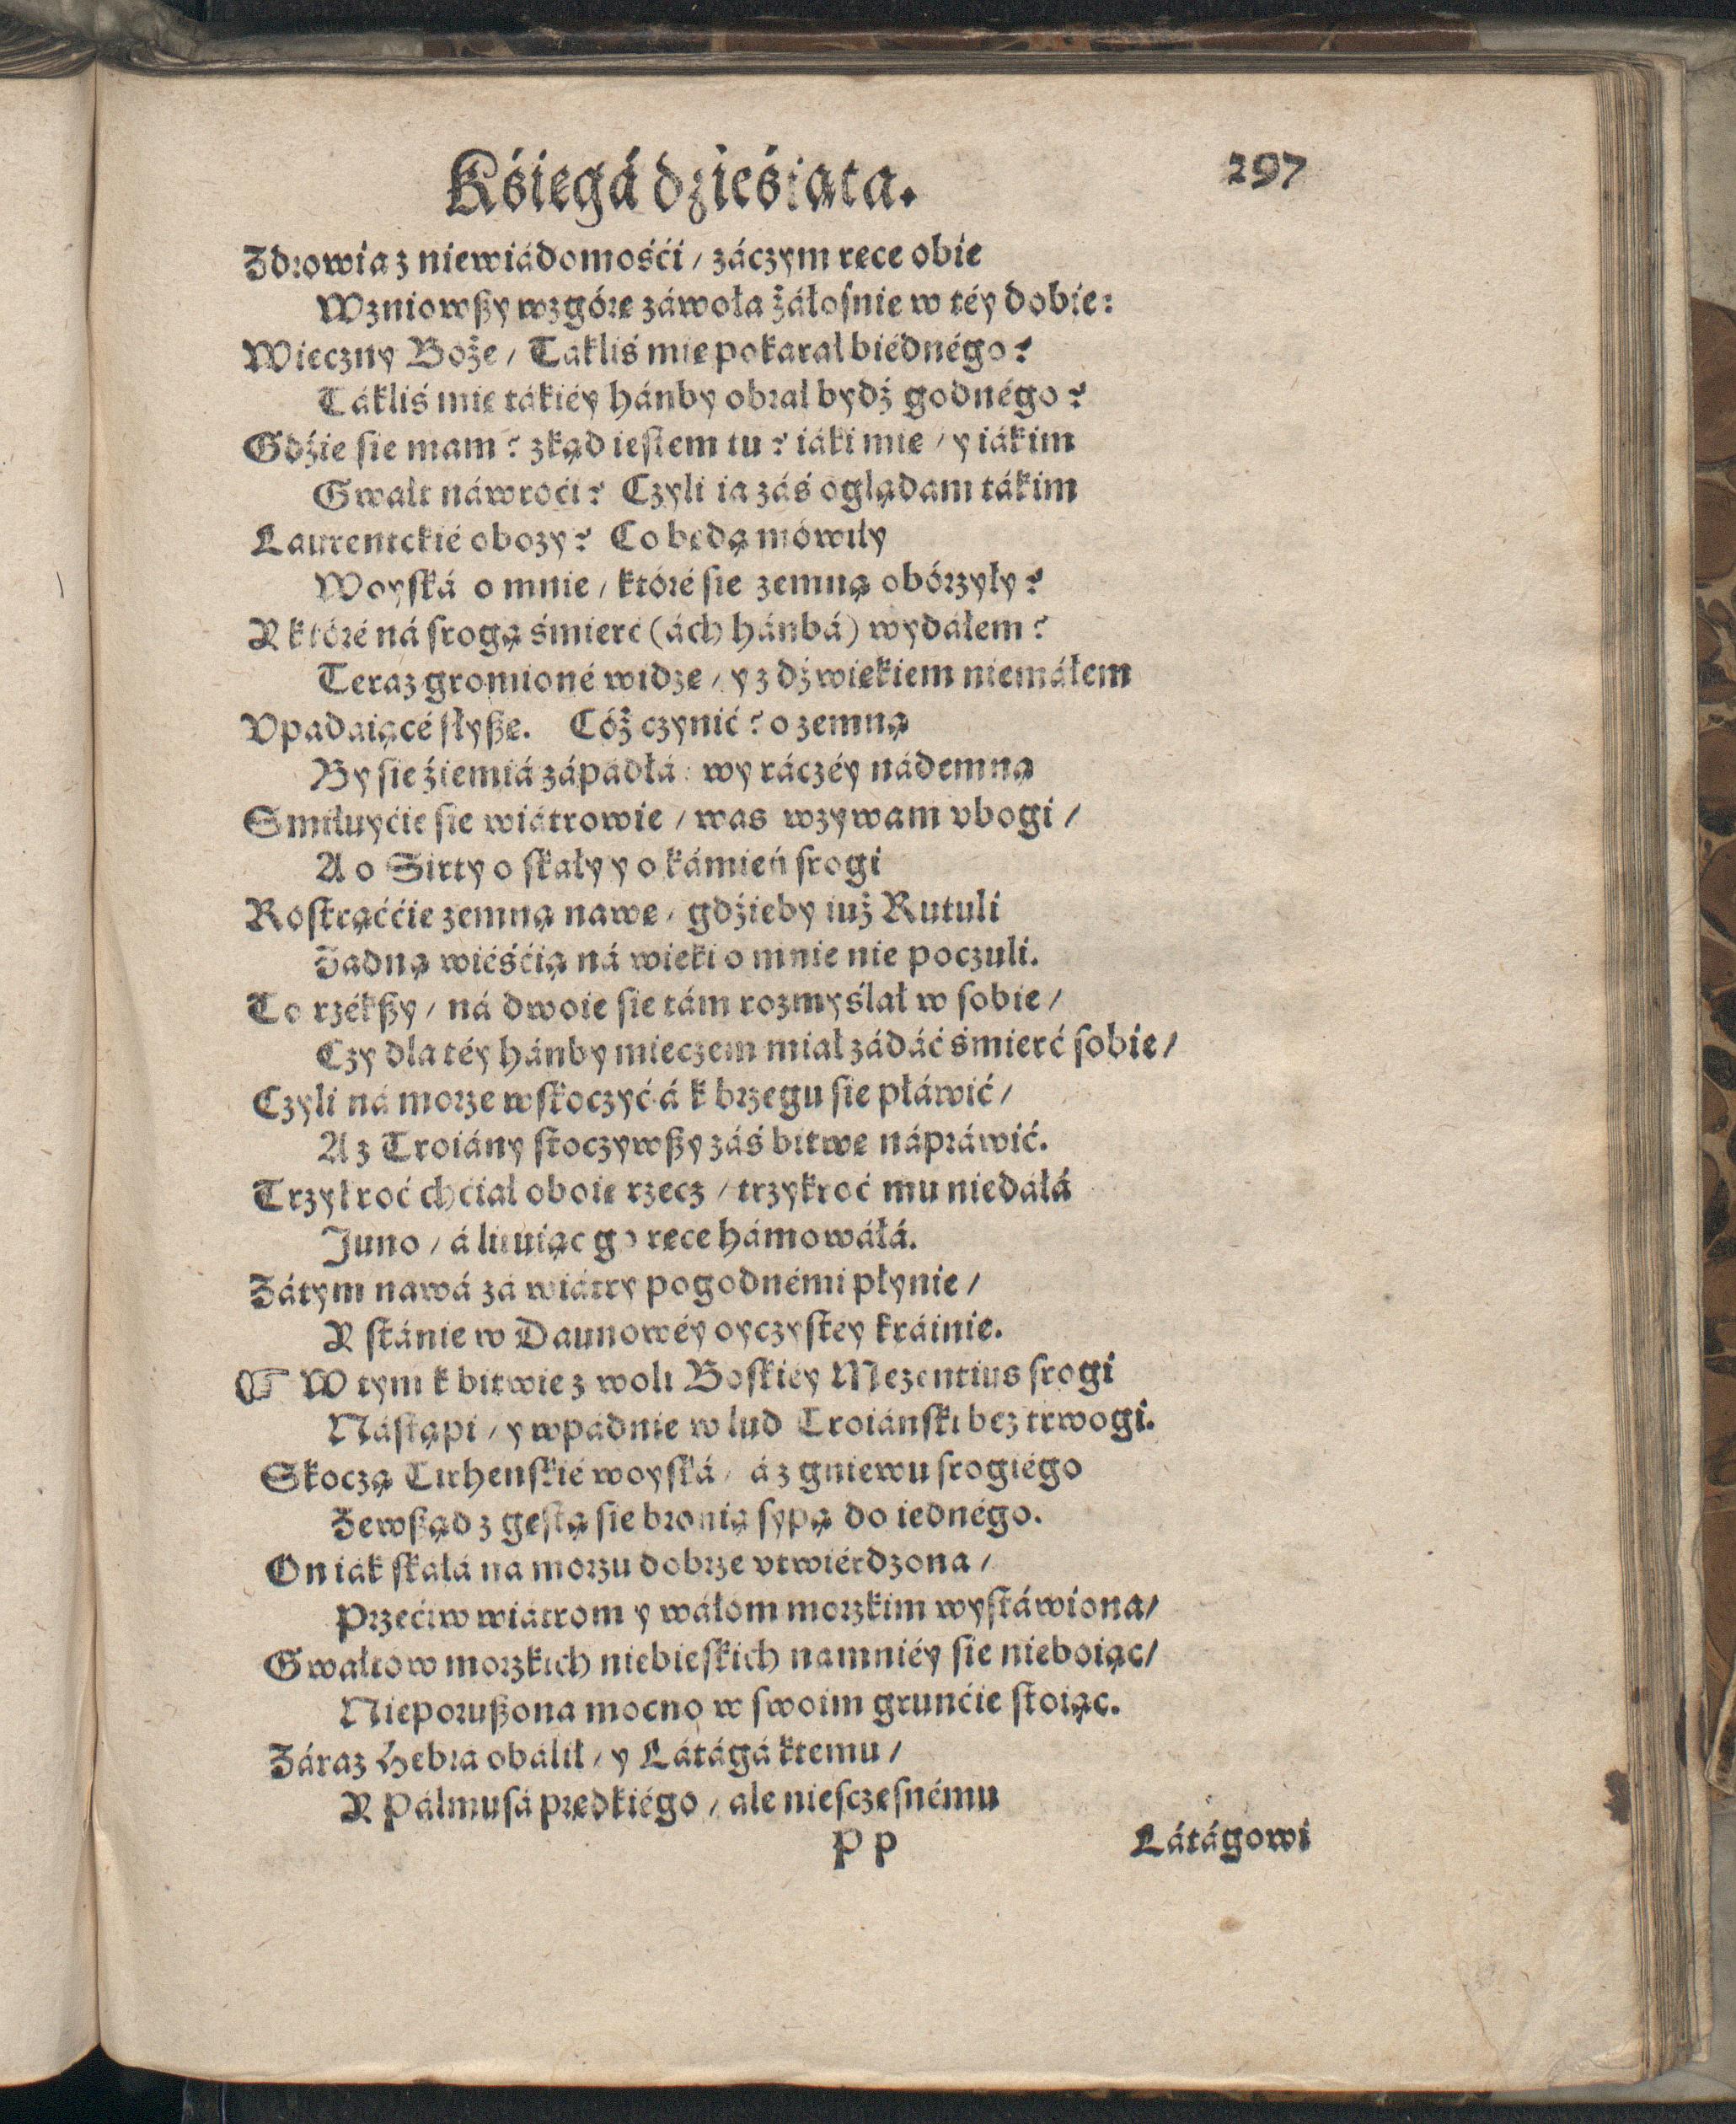 Kśięgá dźieśiąta. 297
Zdrowia z niewiádomośći / záczym ręce obie
Wzniowszy wzgórę záwoła żáłosnie w téy dobie:
Wieczny Boże / Tákliś mię pokarał biédnégo?
Tákliś mię tákiéy háńby obrał bydź godnégo?
Gdźie się mam? zkąd iestem tu? iáki mię / y iákim
Gwałt náwroći? Czyli ia záś oglądam tákim
Laurentckié obozy? Co będą mówiły
Woyská o mnie / któré się zemną obórzyły?
Y któré ná srogą śmierć (ách háńbá) wydałem?
Teraz gromioné widzę / y z dźwiękiem niemáłem
Vpadaiącé słyszę. Cóż czynić? o zemną
By się źiemiá zápádłá: wy ráczéy nádemną
Smiłuyćie się wiátrowie / was wzywam vbogi /
A o Sirty o skały y o kámień srogi
Rostrąććie zemną nawę / gdźieby iuż Rutuli
Zadną wiéśćią ná wieki o mnie nie poczuli.
To rzékszy / ná dwoie się tám rozmyślał w sobie /
Czy dla téy háńby mieczem miał zádáć śmierć sobie /
Czyli ná morze wskoczyć á k brzegu się płáwić /
A z Troiány stoczywszy záś bitwę nápráwić.
Trzykroć chćiał oboię rzecz / trzykroć mu niedáłá
Juno / á lituiąc go ręce hámowáłá.
Zátym nawá zá wiátry pogodnémi płynie /
Y stánie w Daunowéy oyczystey kráinie.
☞ W tym k bitwie z woli Boskiéy Mezentius srogi
Nástąpi / y wpádnie w lud Troiáński bez trwogi.
Skoczą Tirhenskié woyská / á z gniewu srogiégo
Zewsząd z gęstą się bronią sypą do iednégo.
On iák skáłá na morzu dobrze vtwiérdzona /
Przećiw wiátrom y wáłom morzkim wystáwiona /
Gwałtow morzkich niebieskich namniéy się nieboiąc /
Nieporuszona mocno w swoim grunćie stoiąc.
Záraz Hebra obálił / y Látágá ktemu /
Y Pálmusá prędkiégo / ale niesczęsnému
Pp Látágowi